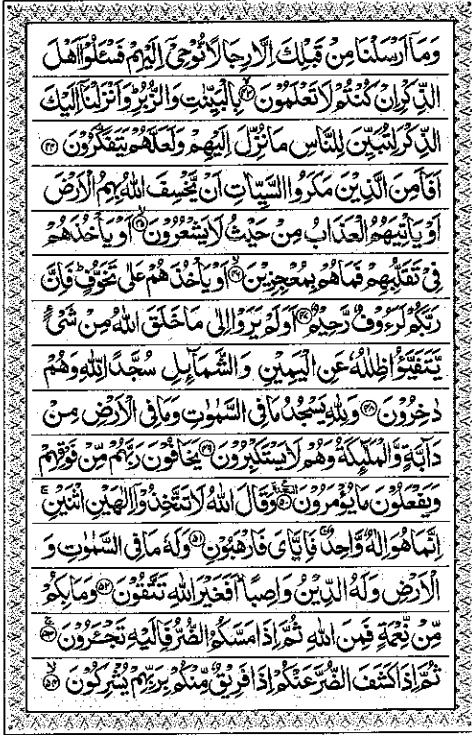 وَمَآ اَرْسَلْنَا مِنْ قَبْلِكَ اِلَّا رِجَالًا نُّوْحِیْۤ اِلَیْهِمْ فَسْـَٔلُوْۤا اَهْلَ
الذِّكْرِ اِنْ كُنْتُمْ لَا تَعْلَمُوْنَ ﴿۴۳﴾ۙ بِالْبَیِّنٰتِ وَالزُّبُرِ ؕ وَاَنْزَلْنَاۤ اِلَیْكَ
الذِّكْرَ لِتُبَیِّنَ لِلنَّاسِ مَا نُزِّلَ اِلَیْهِمْ وَلَعَلَّهُمْ یَتَفَكَّرُوْنَ ﴿۴۴﴾
اَفَاَمِنَ الَّذِیْنَ مَكَرُوا السَّیِّاٰتِ اَنْ یَّخْسِفَ اللّٰهُ بِهِمُ الْاَرْضَ
اَوْ یَاْتِیَهُمُ الْعَذَابُ مِنْ حَیْثُ لَا یَشْعُرُوْنَ ﴿۴۵﴾ۙ اَوْ یَاْخُذَهُمْ
فِیْ تَقَلُّبِهِمْ فَمَا هُمْ بِمُعْجِزِیْنَ ﴿۴۶﴾ۙ اَوْ یَاْخُذَهُمْ عَلٰی تَخَوُّفٍ ؕ فَاِنَّ
رَبَّكُمْ لَرَءُوْفٌ رَّحِیْمٌ ﴿۴۷﴾ اَوَلَمْ یَرَوْا اِلٰی مَا خَلَقَ اللّٰهُ مِنْ شَیْءٍ
یَّتَفَیَّؤُا ظِلٰلُهٗ عَنِ الْیَمِیْنِ وَالشَّمَآئِلِ سُجَّدًا لِّلّٰهِ وَهُمْ
دٰخِرُوْنَ ﴿۴۸﴾ وَلِلّٰهِ یَسْجُدُ مَا فِی السَّمٰوٰتِ وَمَا فِی الْاَرْضِ مِنْ
دَآبَّةٍ وَّالْمَلٰٓئِكَةُ وَهُمْ لَا یَسْتَكْبِرُوْنَ ﴿۴۹﴾ یَخَافُوْنَ رَبَّهُمْ مِّنْ فَوْقِهِمْ
وَیَفْعَلُوْنَ مَا یُؤْمَرُوْنَ ﴿۵۰﴾ وَقَالَ اللّٰهُ لَا تَتَّخِذُوْۤا اِلٰهَیْنِ اثْنَیْنِ ۚ
اِنَّمَا هُوَ اِلٰهٌ وَّاحِدٌ ۚ فَاِیَّایَ فَارْهَبُوْنِ ﴿۵۱﴾ وَلَهٗ مَا فِی السَّمٰوٰتِ وَ
الْاَرْضِ وَلَهُ الدِّیْنُ وَاصِبًا ؕ اَفَغَیْرَ اللّٰهِ تَتَّقُوْنَ ﴿۵۲﴾ وَمَا بِكُمْ
مِّنْ نِّعْمَةٍ فَمِنَ اللّٰهِ ثُمَّ اِذَا مَسَّكُمُ الضُّرُّ فَاِلَیْهِ تَجْـَٔرُوْنَ ﴿۵۳﴾ۚ
ثُمَّ اِذَا كَشَفَ الضُّرَّ عَنْكُمْ اِذَا فَرِیْقٌ مِّنْكُمْ بِرَبِّهِمْ یُشْرِكُوْنَ ﴿۵۴﴾ۙ